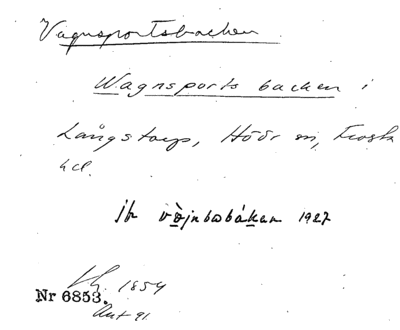 Vagnsportsbacken
Wagnsports backen i
Långstorp, Höör sn, Frosta
hd.
1927
1854
Nr 6853.
Ant 91